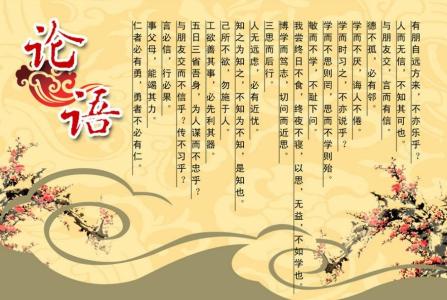 论语
有朋自远方来，不亦乐乎？
人而无信，不知其可也。
与朋友交，言而有信
德不孤，必有邻。
学而不厌，诲人不倦
学而时习之，不亦说乎？
学而不思则罔，思而不学则殆。
敏而不学，不耻下问。
我尝终日不食，终夜不寝，以思，无益，不如学也。
博学而笃志，切问而近思。
三思而后行。
人无远虑，必有近忧。
己所不欲，勿施于人。
知之为知之，不知为不知，是知也。
工欲善其事，必先利其器。
五日三省吾身，为人谋而不忠乎？
与朋友交而不信乎？传不习乎？
言必信，行必果。
事父母，能竭其力。
仁者必有勇，勇者不必有仁。